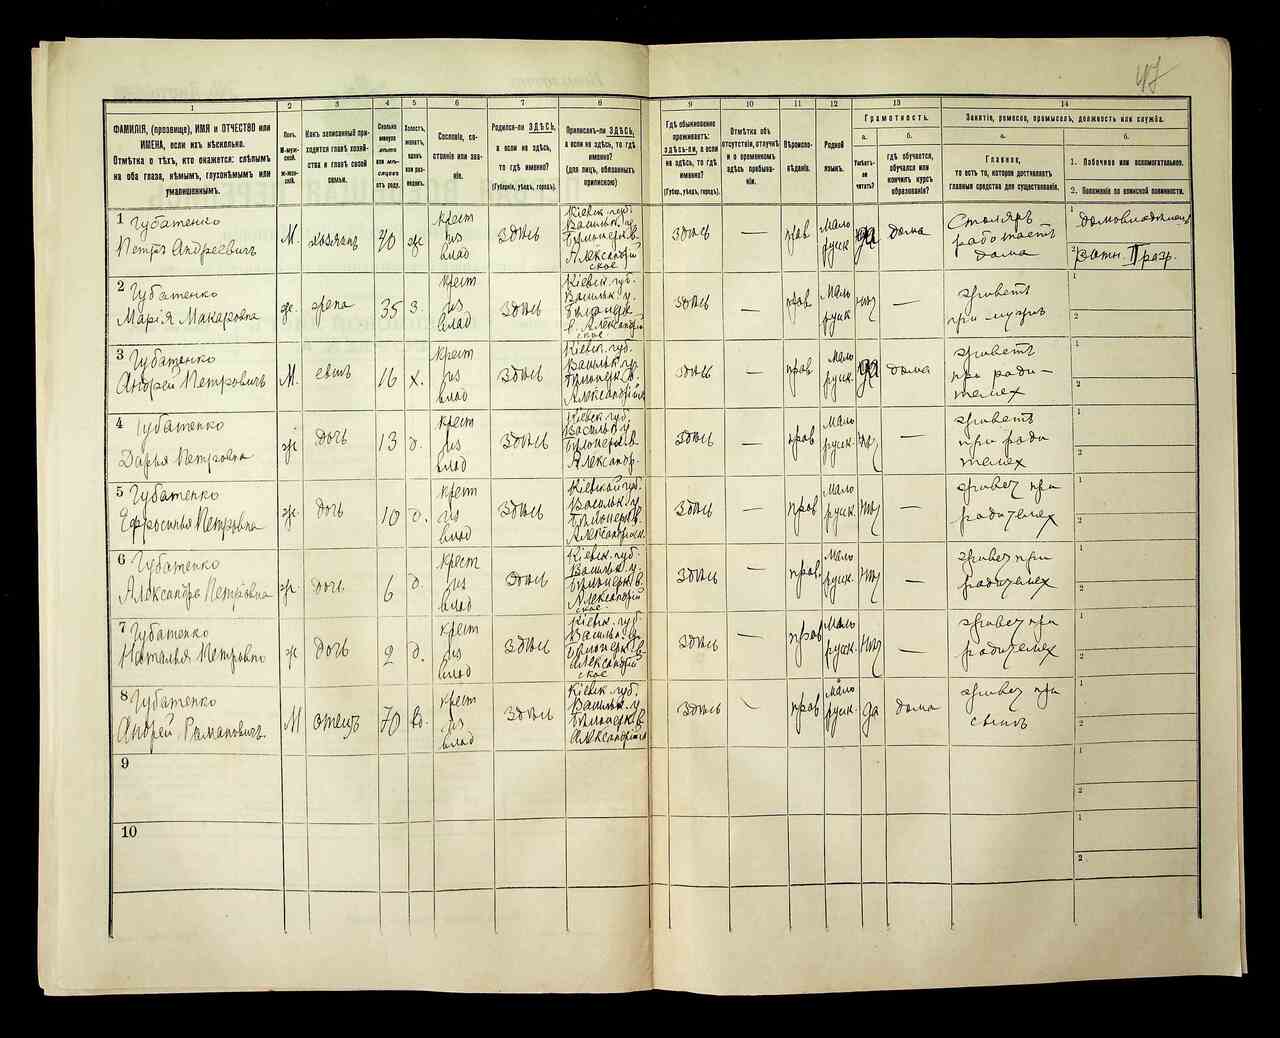 47
1
2
3
4
5
6
7
8
9
10
11
12
13
14
ФАМИЛІЯ, (прозвище), ИМЯ и ОТЧЕСТВО или
ИМЕНА, если ихъ нѣсколько.
Отмѣтка о тѣхъ, кто окажется: слѣпымъ
на оба глаза, нѣмымъ, глухонѣмымъ или
умалишеннымъ.
Полъ.
М-мужской.
ж-женскій.
Какъ записанный приходится
главѣ хозяйства
и главѣ своей
семьи.
Сколько
минуло
лѣтъ
или мѣсяцевъ
отъ роду.
Холостъ,
женатъ,
вдовъ
или разведенъ.
Сословіе, состояніе
или званіе.
Родился-ли ЗДѢСЬ,
а если не здѣсь,
то гдѣ именно?
(Губернія, уѣздъ, городъ).
Приписанъ-ли ЗДѢСЬ,
а если не здѣсь, то гдѣ
именно?
(для лицъ, обязанныхъ
припискою)
Гдѣ обыкновенно
проживаетъ:
здѣсь-ли, а если
не здѣсь, то гдѣ
именно?
(Губер., уѣздъ, городъ).
Отмѣтка объ
отсутствіи, отлучкѣ
и о временномъ
здѣсь пребываніи.
Вѣроисповѣданіе.
Родной
языкъ.
Грамотность.
а.
Умѣетъ-ли
читать?
б.
гдѣ обучается,
обучался или
кончилъ курсъ
образованія?
Занятіе, ремесло, промыселъ, должность или служба.
а.
Главное,
то есть то, которое доставляетъ
главныя средства для существованія.
б.
1. Побочное или вспомогательное.
2. Положеніе по воинской повинности.
1 Губатенко
Петръ Андреевичъ
М.
хозяинъ
40
ж
крест
из
влад
здѣсь
Кіевск. губ.
Васильк. у.
Александрій
ское
здѣсь
—
прав
Мало
русск
да
дома
Столяръ
работаетъ
дома
1 домовладѣлецъ
2 Ратн. II разр.
2 Губатенко
Марія Макаровна
ж.
жена
35
з.
крест
из
влад
здѣсь
Кіевск. губ.
Васильк. у.
в. Александрій
ское
здѣсь
—
прав
Мало
русск
нѣт
—
живетъ
при мужѣ
1
2
3 Губатенко
Андрей Петровичъ
М.
сынъ
16
х.
крест
из
влад
здѣсь
Кіевск. губ.
Васильк. у.
здѣсь
—
прав
Мало
русск.
да
дома
живетъ
при роди-
телях
1
2
4 Губатенко
Дарья Петровна
ж
дочь
13
д.
крест
из
влад
здѣсь
Кіевск. губ.
Васильк. у
Александр.
здѣсь
—
прав
Мало
русск.
нѣт
—
живетъ
при роди
телях
1
2
5 Губатенко
Ефросинья Петровна
ж.
дочь
10
д.
крест
из
влад
здѣсь
Кіевской губ.
Васильк. у
здѣсь
—
прав
Мало
русск.
нѣт
—
живет при
родителях
1
2
6 Губатенко
Александра Петровна
ж.
дочь
6
д.
крест
из
влад
здѣсь
Кіевск. губ.
Васильк. у.
Александрій
ское.
здѣсь
—
прав.
Мало
русск.
нѣт
—
живет при
родителях
1
2
7 Губатенко
Наталья Петровна
ж
дочь
2
д.
крест
из
влад
здѣсь
Кіевск. губ.
Васильк. у.
Александрій
ское
здѣсь
—
прав
Мало
русск.
нѣт
—
живет при
родителях
1
2
8 Губатенко
Андрей Романовичъ.
М
отецъ
70
вд.
крест
из
влад
здѣсь
Кіевск губ.
Васильк. у
здѣсь
прав
Мало
русск.
да
дома
живет при
сынѣ
1
2
9
1
2
10
1
2